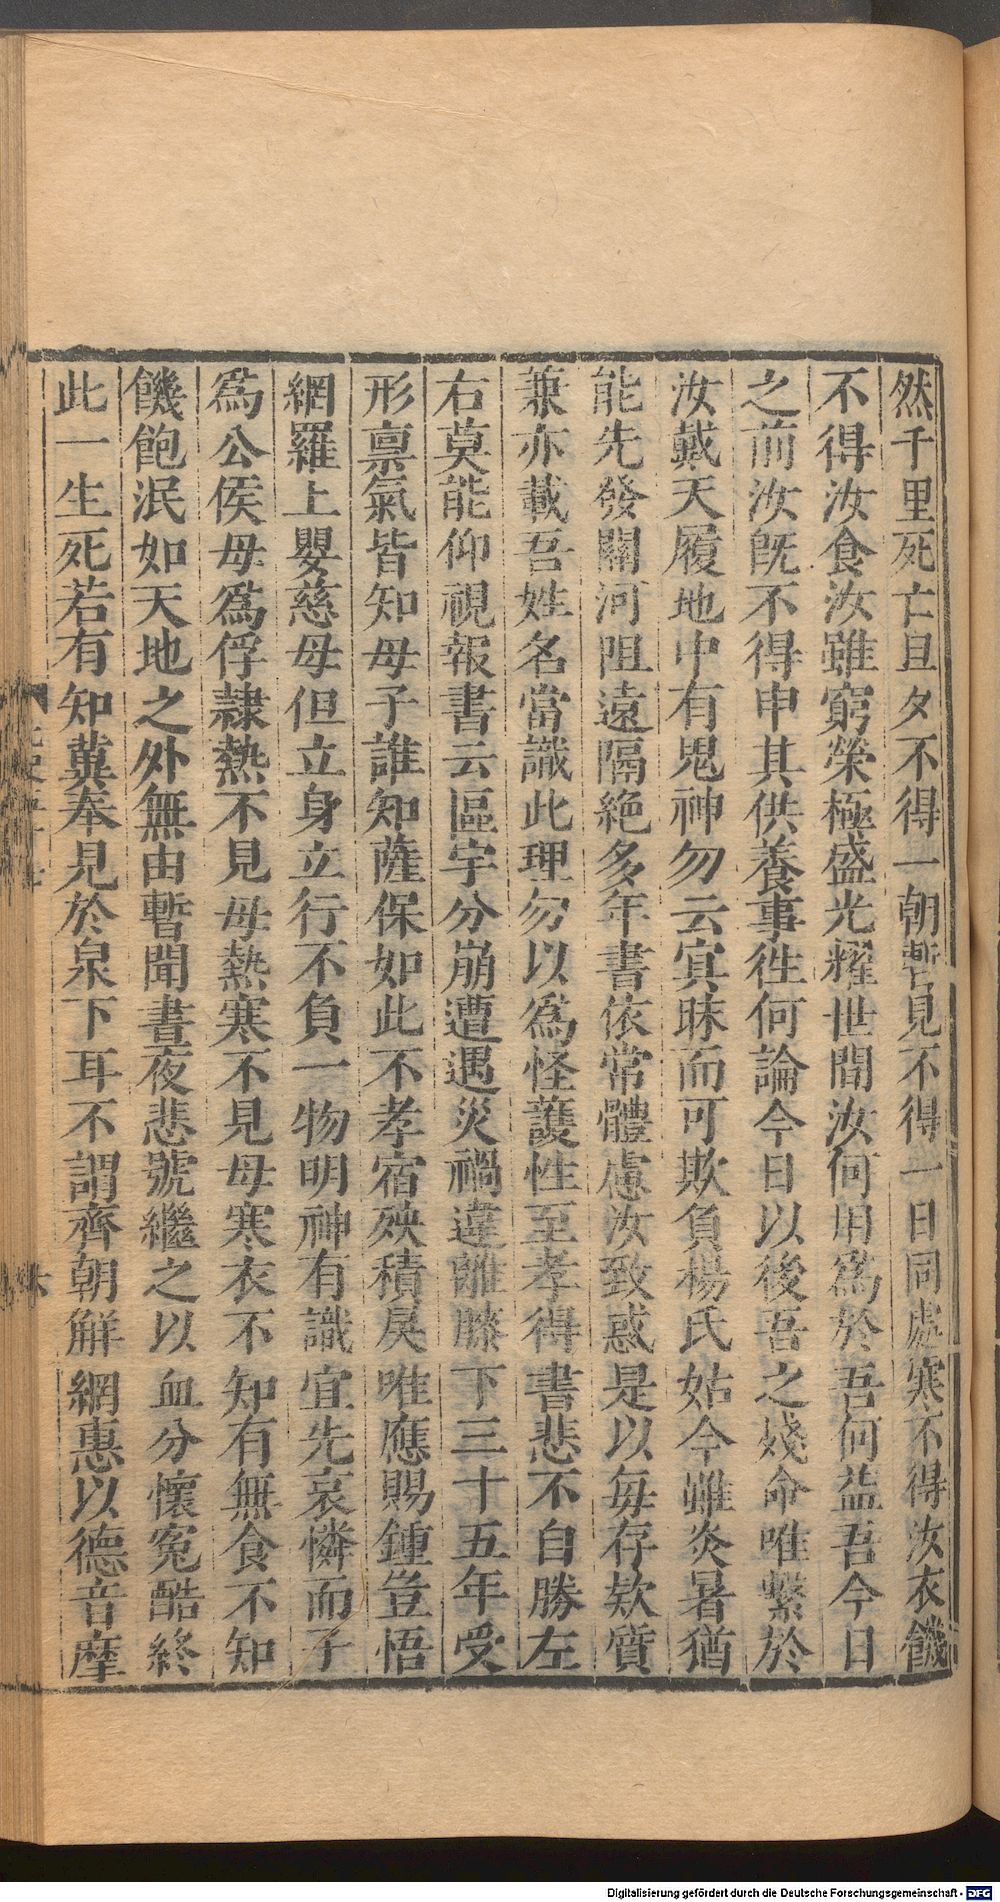 然千里死亡旦夕不得一朝暫見不得一日同處寒不得汝衣饑
不得汝食汝雖窮榮極盛光耀世間汝何用爲於吾何益吾今日
之前汝旣不得申其供養事徃何論今日以後吾之殘命唯繫於
汝戴天履地中有鬼神勿云冥昧而可欺負楊氏姑今雖炎暑猶
能先發關河阻遠隔絶多年書依常體慮汝致惑是以每存欵質
兼亦載吾姓名當識此理勿以爲怪護性至孝得書悲不自勝左
右莫能仰視報書云區宇分崩遭遇災禍違離膝下三十五年受
形禀氣皆知母子誰知薩保如此不孝宿殃積戾唯應賜鍾豈悟
網羅上嬰慈母但立身立行不負一物明神有識宜先哀憐而子
爲公侯母爲俘隷熱不見母熱寒不見母寒衣不知有無食不知
饑飽泯如天地之外無由暫聞晝夜悲號繼之以血分懷寃酷終
此一生死若有知冀奉見於泉下耳不謂齊朝解網惠以德音摩
Digitalisierung gefördert durch die Deutsche Forschungsgemeinschaft - DFG